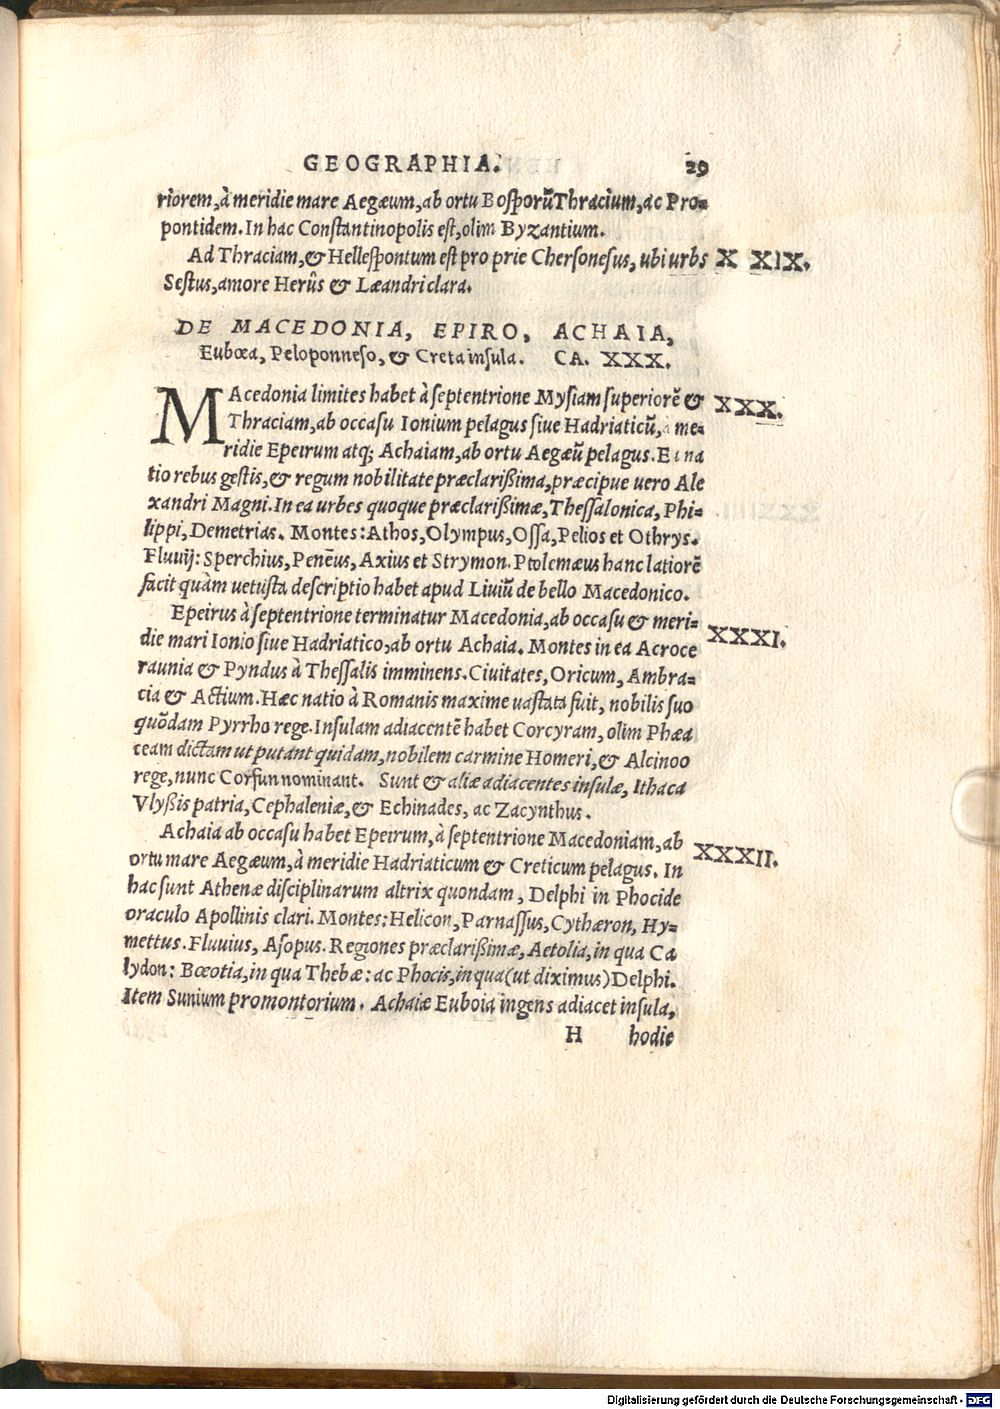 GEOGRAPHIA. 29
riorem, à meridie mare Aegæum, ab ortu Bosporũ Thracium, ac Pro=
pontidem. In hac Constantinopolis est, olim Byzantium.
Ad Thraciam, & Hellespontum est pro prie Chersonesus, ubi urbs X XIX.
Sestus, amore Herûs & Læandri clara.
DE MACEDONIA, EPIRO, ACHAIA,
Eubœa, Peloponneso, & Creta insula. CA. XXX.
MAcedonia limites habet à septentrione Mysiam superiorẽ & XXX.
Thraciam, ab occasu Ionium pelagus siue Hadriaticũ, a me=
ridie Epeirum atq; Achaiam, ab ortu Aegæũ pelagus. Et na
tio rebus gestis, & regum nobilitate præclarißima, præcipue uero Ale
xandri Magni. In ea urbes quoque præclarißimæ, Thessalonica, Phi=
lippi, Demetrias. Montes: Athos, Olympus, Ossa, Pelios et Othrys.
Fluuij: Sperchius, Penẽus, Axius et Strymon. Ptolemæus hanc latiorẽ
facit quàm uetusta descriptio habet apud Liuiũ de bello Macedonico.
Epeirus à septentrione terminatur Macedonia, ab occasu & meri= XXXI.
die mari Ionio siue Hadriatico, ab ortu Achaia. Montes in ea Acroce
raunia & Pyndus à Thessalis imminens. Ciuitates, Oricum, Ambra=
cia & Actium. Hæc natio à Romanis maxime uastata fuit, nobilis suo
quõdam Pyrrho rege. Insulam adiacentẽ habet Corcyram, olim Phæa
ceam dictam ut putant quidam, nobilem carmine Homeri, & Alcinoo
rege, nunc Corfun nominant. Sunt & aliæ adiacentes insulæ, Ithaca
Vlyßis patria, Cephaleniæ, & Echinades, ac Zacynthus.
Achaia ab occasu habet Epeirum, à septentrione Macedoniam, ab XXXII.
ortu mare Aegæum, à meridie Hadriaticum & Creticum pelagus. In
hac sunt Athenæ disciplinarum altrix quondam, Delphi in Phocide
oraculo Apollinis clari. Montes: Helicon, Parnassus, Cythæron, Hy=
mettus. Fluuius, Asopus. Regiones præclarißimæ, Aetolia, in qua Ca
lydon: Bœotia, in qua Thebæ: ac Phocis, in qua (ut diximus) Delphi.
Item Sunium promontorium. Achaiæ Euboia ingens adiacet insula,
H hodie
Digitalisierung gefördert durch die Deutsche Forschungsgemeinschaft - DFG